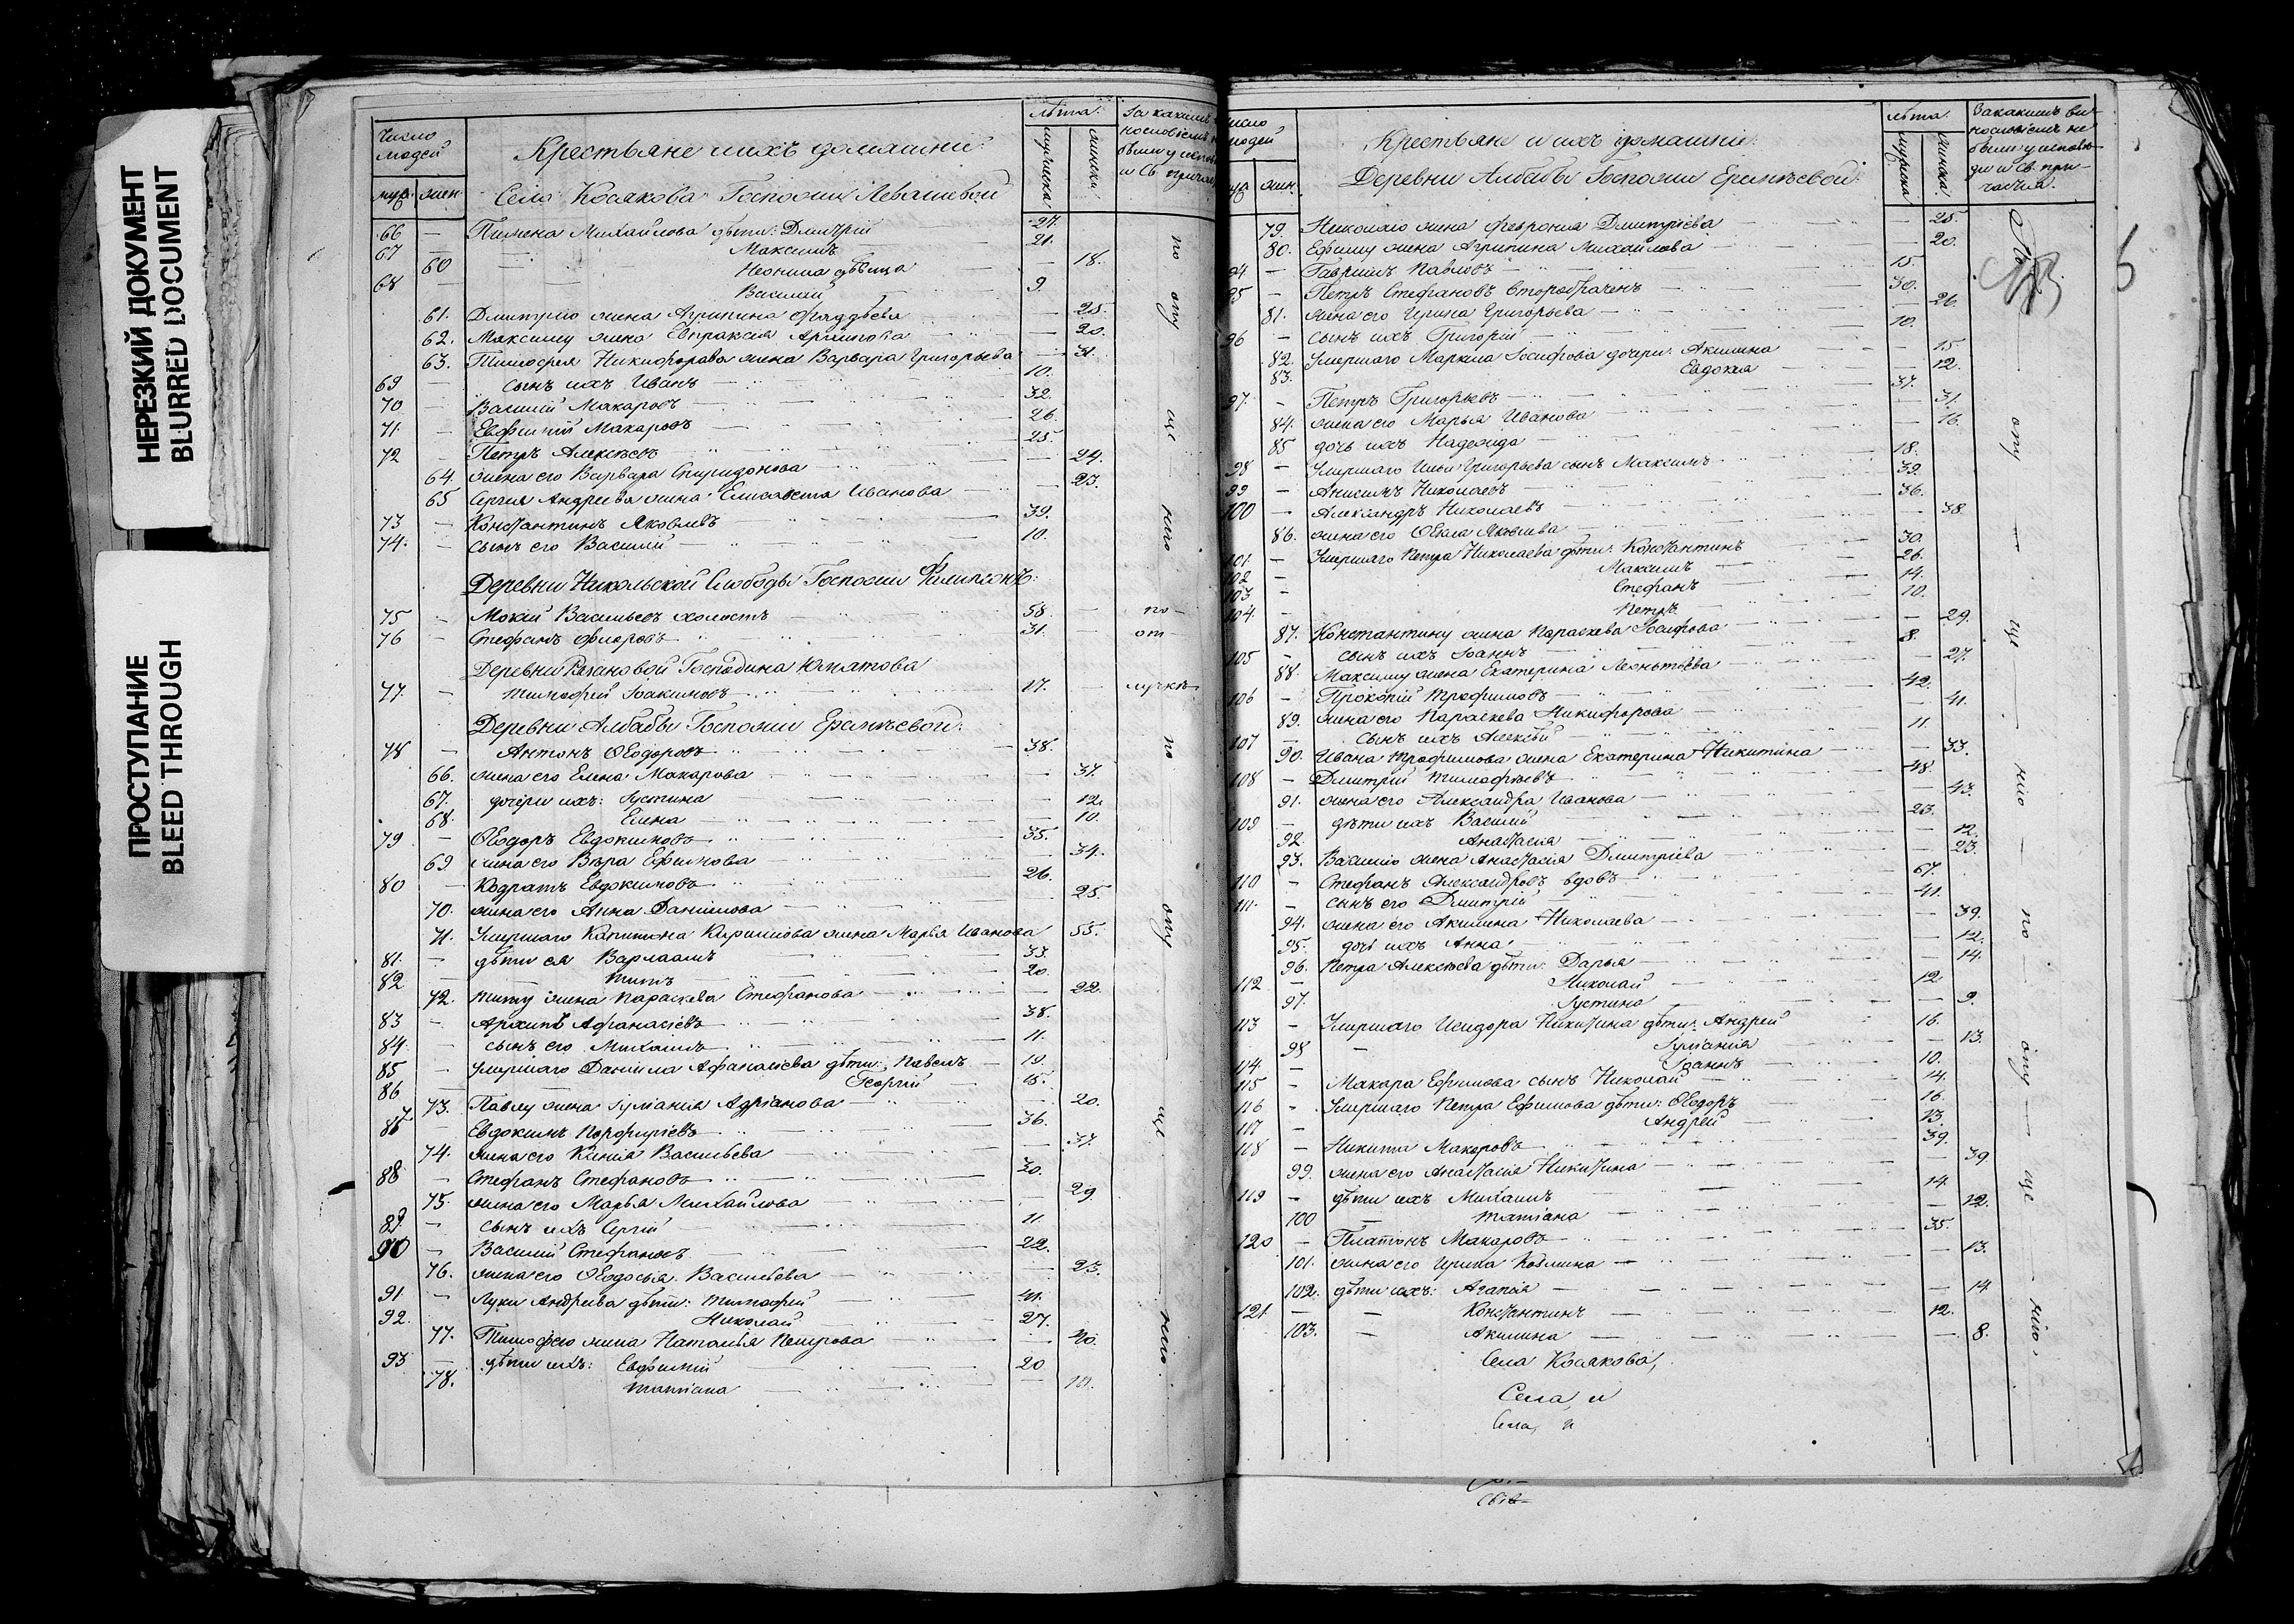 НЕРЕЗКИЙ ДОКУМЕНТ
BLURRED DOCUMENT
ПРОСТУПАНИЕ
BLEED THROUGH
Число людей
муж. жен.
Крестьяне и ихъ домашніе:
Села Косякова Госпожи Левашевой
Лѣта.
мужеска женска
За какимъ
и Св. прича
66 — Пимена Михайлова дѣти: Дмитрій 24.
67 — Максимъ 21.
60 Неонила дѣвица — 18.
68 — Василій 9.
61. Дмитрію жена Агрипина Фаддѣева — 25.
62. Максиму жена Евпраксія Архипова — 20.
63. Тимофея Никифорова жена Варвара Григорьева — 31.
69 — сынъ ихъ Иванъ 10.
70 — Василій Макаровъ 32.
71. — Евфимій Макаровъ 26.
72 — Петръ Алексѣевъ 25.
64. жена его Варвара Спиридонова — 24.
65 Сергія Андреева жена Елисавета Иванова — 23.
73 — Константинъ Яковлевъ 39.
74. — сынъ его Василій 10.
Деревни Никольской Слободы Госпожи Филипсонъ:
75 — Мокій Васильевъ холостъ 58. — по-
76 — Стефанъ Флоровъ 31. — от
Деревни Рязановой Господина Юматова
77. — Тимофей Іоакимовъ 17. лучкѣ
Деревни Алабы Госпожи Еремѣевой:
78 — Антонъ Ѳеодоровъ 38.
66. жена его Елена Макарова — 37.
67. дочери ихъ: Іустина — 12.
68. Елена — 10.
79 — Ѳеодоръ Евдокимовъ 35.
69 жена его Вѣра Ефимова — 34.
80 — Кодратъ Евдокимовъ 26.
70. жена его Анна Данилова — 25.
71. Умершаго Капитона Кирилова жена Марья Иванова 55.
81. — дѣти ея Варлаамъ 33.
82 — Титъ 20.
72. Титу жена Параскева Стефанова — 22.
83 — Архипъ Афанасіевъ 38.
84. — сынъ его Михаилъ 11.
85 — Умершаго Даніила Афанасіева дѣти: Павелъ 19.
86 — Георгій 15.
73. Павлу жена Іуліанія Адріанова — 20.
87 — Евдокимъ Порфиріевъ 36.
74. жена его Ксенія Васильева — 37.
88 — Стефанъ Стефановъ 30.
75. жена его Марья Михайлова — 29
89. — сынъ ихъ Сергій 11.
90 — Василій Стефановъ 22.
76. жена его Ѳеодосья Васильева — 23.
91. — Луки Андреева дѣти: Тимофей 41.
92. Николай 27.
77. Тимофею жена Наталья Петрова — 40.
93 — дѣти ихъ: Евфимій 20
78. Татіана —
по ему же него по ему же него
Число людей
жен.
Крестьяне и ихъ домашніе:
Деревни Алабы Госпожи Еремѣевой:
Лѣта.
женска.
За какимъ
и Св. при-
частія.
79. Николаю жена Феврония Дмитріева — 25.
80. Ефиму жена Агрипина Михайлова — 20.
94 — Гавріилъ Павловъ 15.
95 — Петръ Стефановъ второбраченъ 30.
81. жена его Ирина Григорьева — 26.
96 — сынъ ихъ Григорій 10.
82. Умершаго Маркела Іосифова дочери: Акилина — 15
83. Евдокія — 12.
97. — Петръ Григорьевъ 37.
84. жена его Марья Иванова — 31.
85 дочь ихъ Надежда — 16.
98 — Умершаго Ильи Григорьева сынъ Максимъ 18.
99 — Анисимъ Николаевъ 39.
100 — Александръ Николаевъ 36.
86. жена его Ѳекла Яковлева — 38
101. — Умершаго Петра Николаева дѣти: Константинъ 30.
102 — Максимъ 26.
103 — Стефанъ 14.
104. — Петръ 10.
87. Константину жена Параскева Іосифова — 29.
105 — сынъ ихъ Іоаннъ 8.
88. Максиму жена Екатерина Леонтьева — 27.
106 — Прокопій Трофимовъ 42.
89. жена его Параскева Никифорова — 41.
107 — сынъ ихъ Алексѣй 11.
90. Ивана Трофимова жена Екатерина Никитина — 33.
108 — Дмитрій Тимофѣевъ 48.
91. жена его Александра Иванова — 43.
109 — дѣти ихъ Василій 23.
92. Анастасія — 12.
93. Василію жена Анастасія Дмитріева — 23.
110 — Стефанъ Александровъ вдовъ 67.
111. — сынъ его Дмитрій 41.
94. жена его Акилина Николаева — 39.
95. дочь ихъ Анна — 12.
96. Петра Алексѣева дѣти: Дарья — 14.
112 — Николай 12
97. Іустина — 9.
113 — Умершаго Исидора Никитина дѣти: Андрей 16.
98 — Іуліанія — 13.
114. — Іоаннъ 10.
115 — Макара Ефимова сынъ Николай 14.
116 — Умершаго Петра Ефимова дѣти: Ѳеодоръ 16.
117 — Андрей 13.
118 — Никита Макаровъ 39.
99. жена его Анастасія Никитина — 39
119 — дѣти ихъ Михаилъ 14
100 — Татіана — 12.
120 — Платонъ Макаровъ 35.
101. жена его Ирина Козмина — 13.
102. дѣти ихъ: Агапія — 14
121 — Константинъ 12.
103. — Акилина — 8.
Села Косякова,
Села, и
Села, и
— ему — же — него — по — ему — же — него.